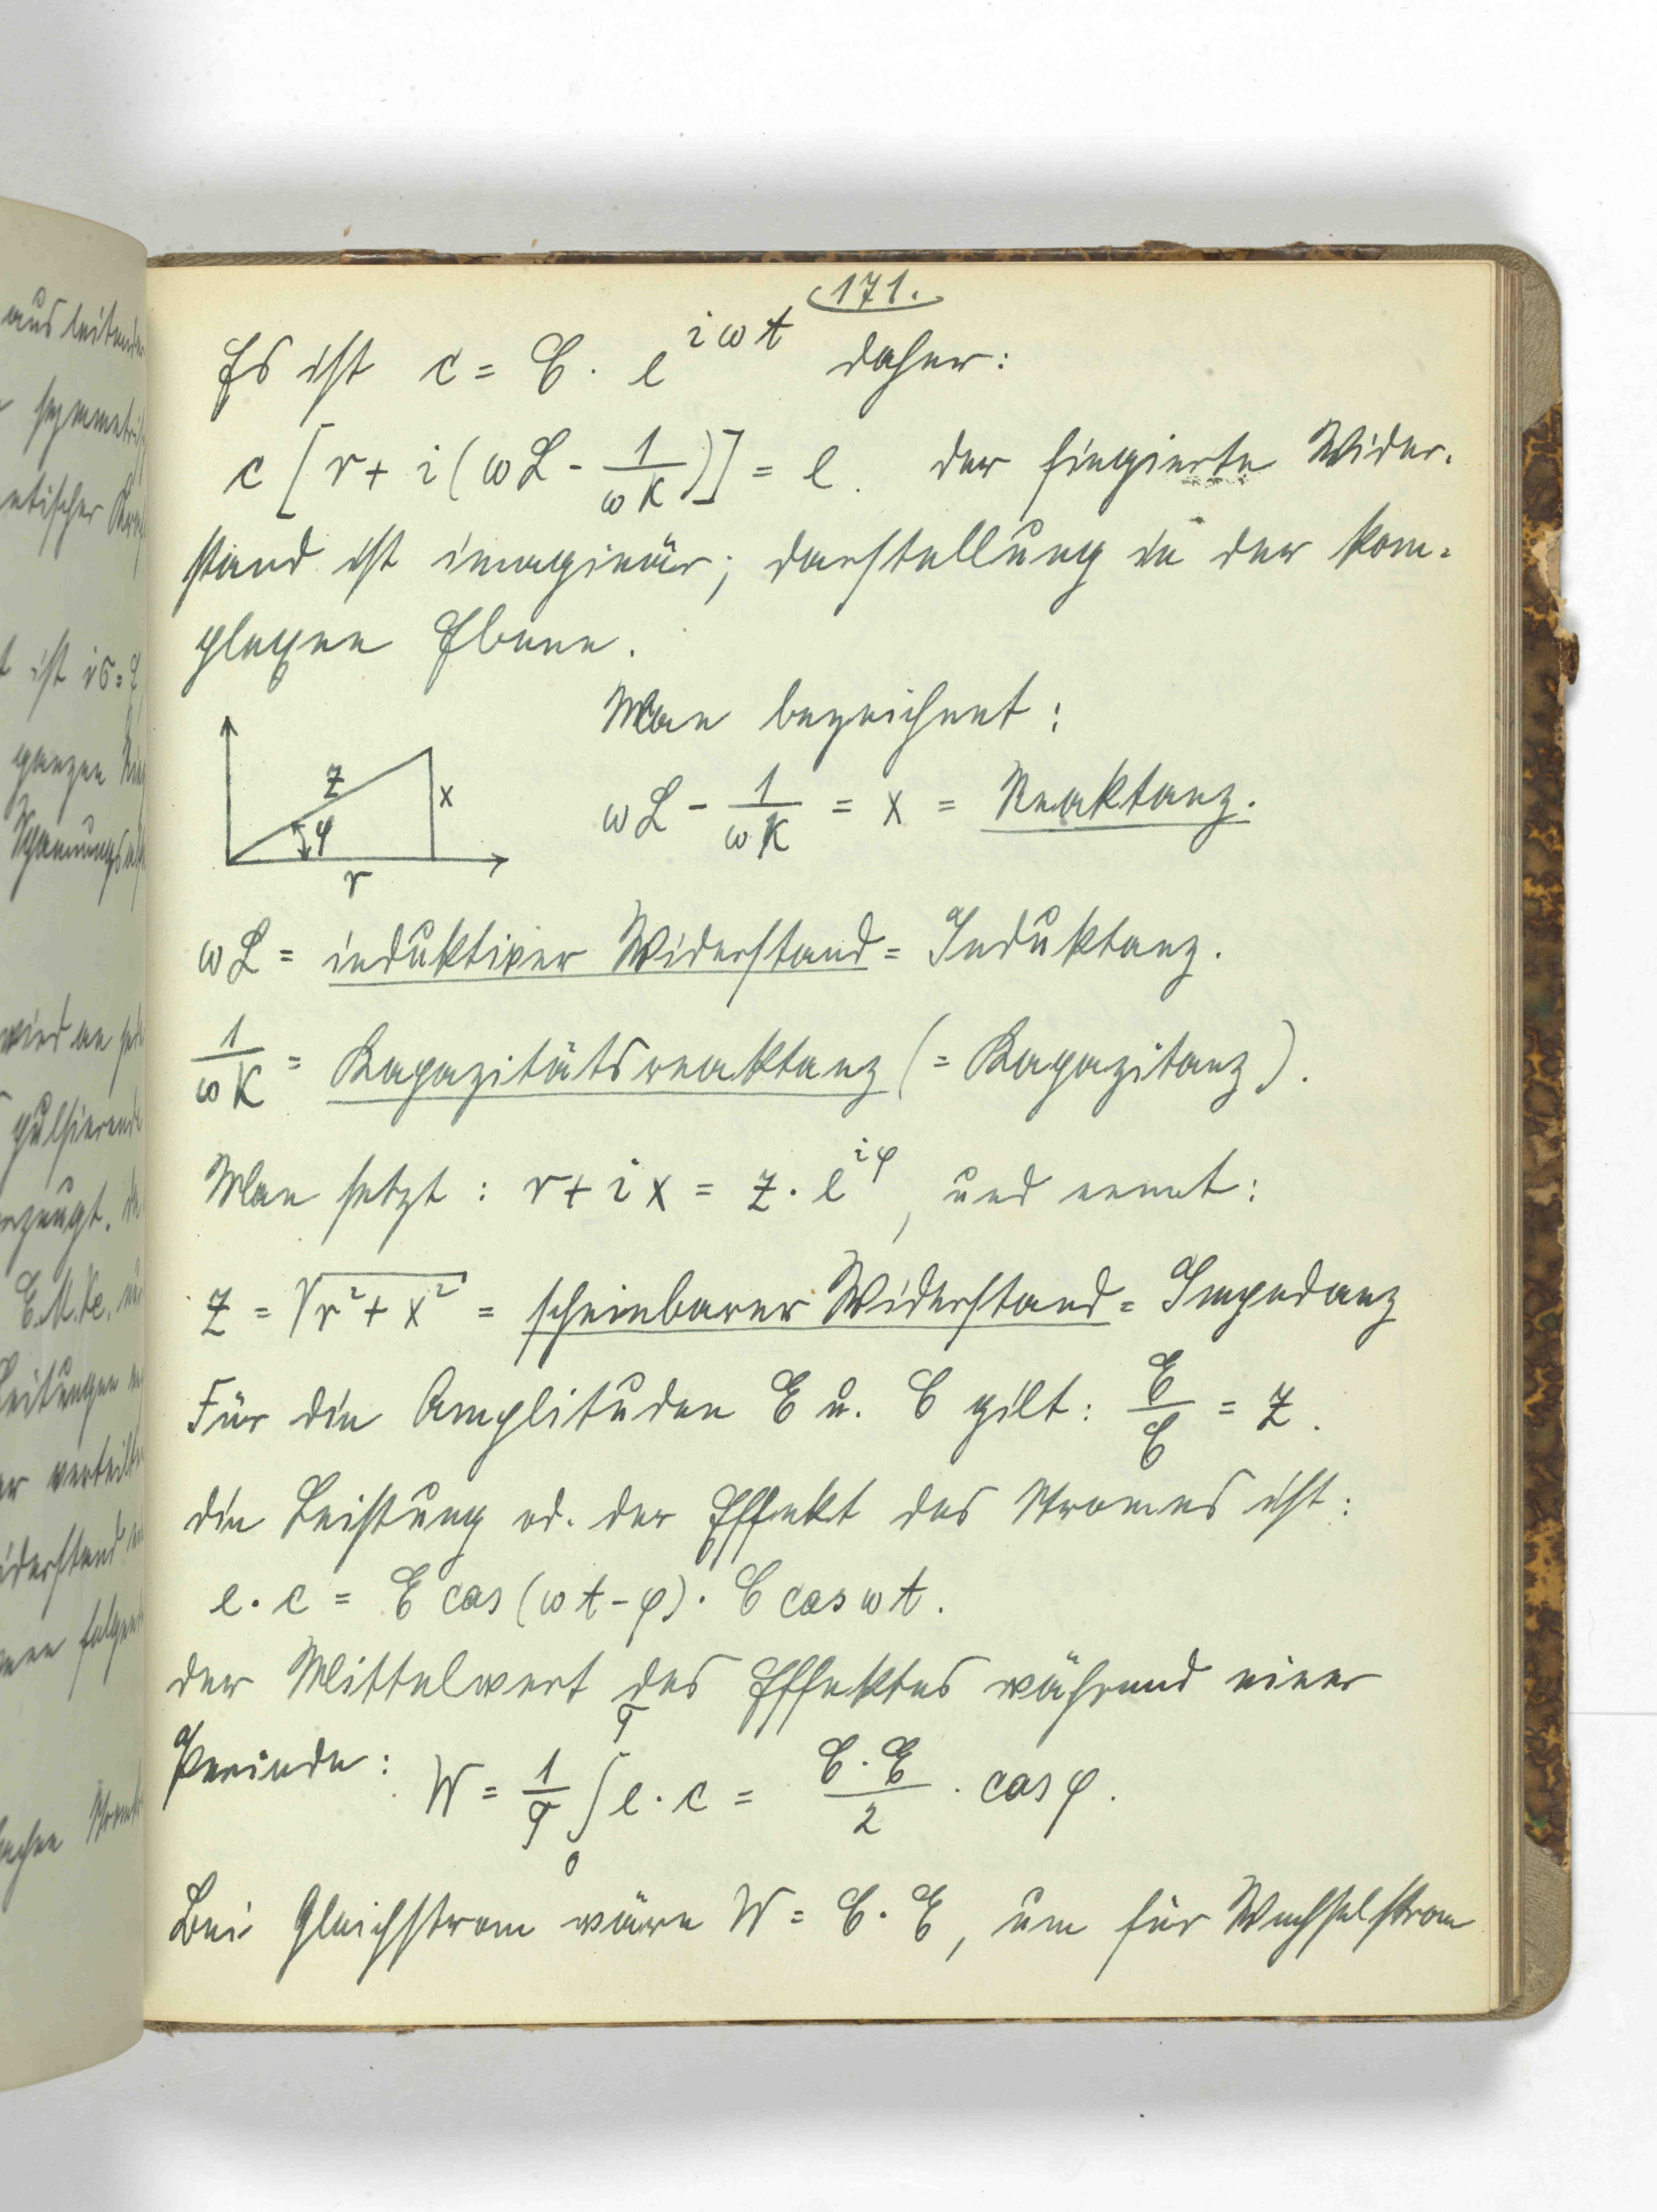 171.
Es ist c = C · e^{iωt} daher:
c [r + i(ωL - 1/ωK)] = e. der fingierte Wider-
stand ist imaginär; darstellung in der kom-
plexen Ebene.
Man bezeichnet:
z
x
φ
r
ωL - 1/ωK = x = Reaktanz.
ωL = induktiver Widerstand = Induktanz.
1/ωK = Kapazitätsreaktanz (= Kapazitanz).
Man setzt: r + ix = z · e^{iφ}, und nennt:
z = √(r² + x²) = scheinbarer Widerstand = Impedanz
Für die Amplituden E u. C gilt: E/C = z.
die Leistung od. der Effekt des Stromes ist:
e · c = E cos(ωt - φ) · C cos ωt.
der Mittelwert des Effektes während einer
Periode: W = 1/T ∫₀ᵀ e · c = C·E/2 · cos φ.
Bei Gleichstrom wäre W = C · E, um für Wechselstrom
aus leitende
symmetri
netischer
ist
ganzen
Spannungs
wird an
pulsierend
erzeugt.
E.M.K.
Leitungen
verteilt
iderstand